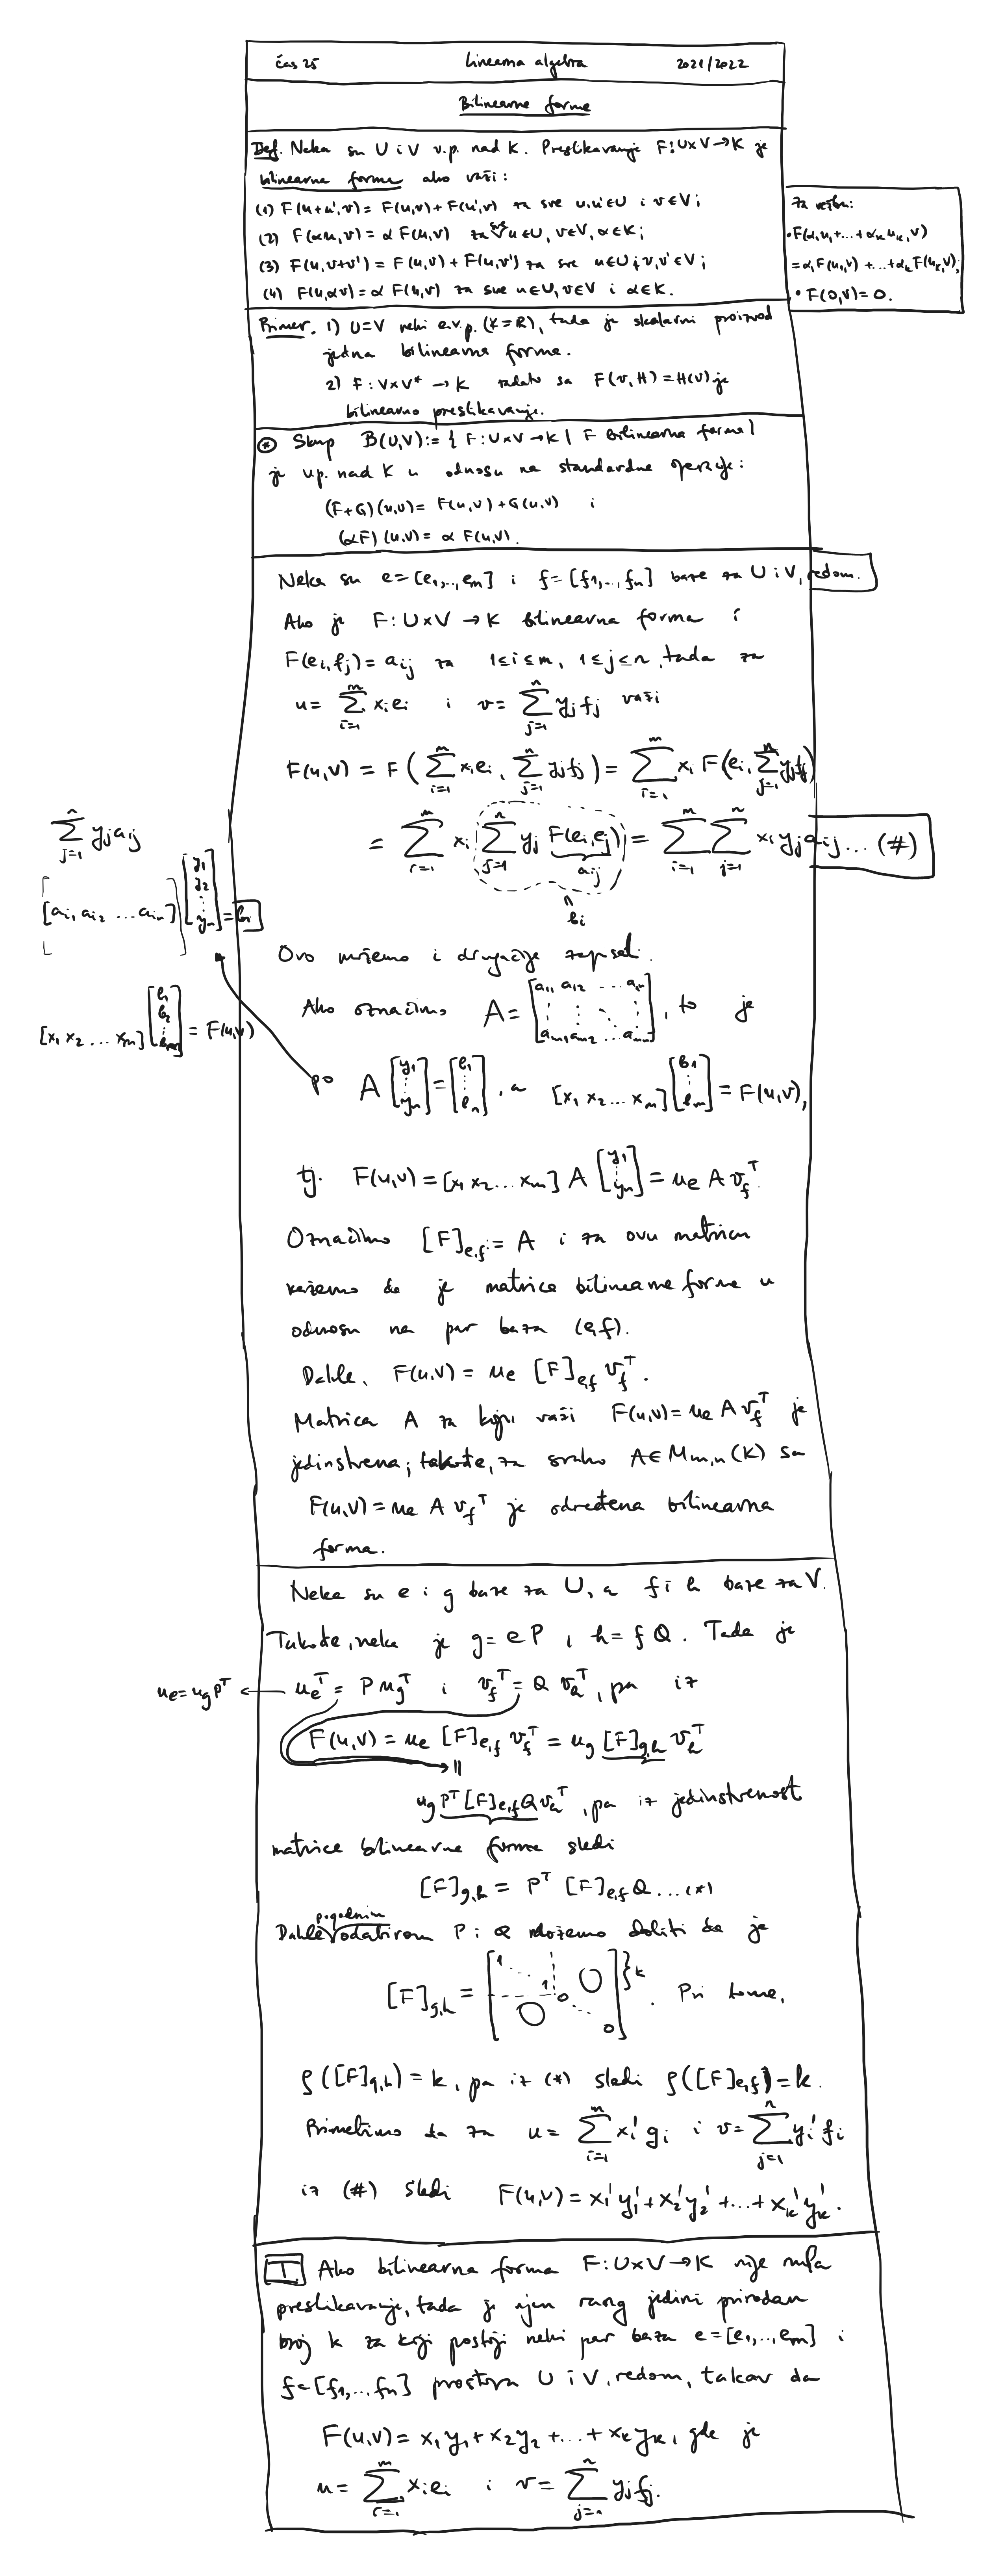 čas 25 Linearna algebra 2021/2022
Bilinearne forme
Def. Neka su U i V v.p. nad K. Preslikavanje F: U×V→K je
bilinearna forma ako važi:
(1) F(u+u',v) = F(u,v) + F(u',v) za sve u,u'∈U i v∈V;
(2) F(αu,v) = α F(u,v) za sve u∈U, v∈V, α∈K;
(3) F(u,v+v') = F(u,v) + F(u,v') za sve u∈U i v,v'∈V;
(4) F(u,αv) = α F(u,v) za sve u∈U, v∈V i α∈K.
Za vežbu:
• F(α₁u₁+...+αₖuₖ,v)
= α₁F(u₁,v) +...+αₖF(uₖ,v);
• F(0,v) = 0.
Primer. 1) U=V neki e.v.p. (K=R), tada je skalarni proizvod
jedna bilinearna forma.
2) F: V×V* → K zadato sa F(v,H) = H(v) je
bilinearno preslikavanje.
⊛ Skup B(U,V) := { F: U×V→K | F bilinearna forma}
je v.p. nad K u odnosu na standardne operacije:
(F+G)(u,v) = F(u,v) + G(u,v) i
(αF)(u,v) = α F(u,v).
Neka su e=[e₁,..,eₘ] i f=[f₁,..,fₙ] baze za U i V, redom.
Ako je F: U×V → K bilinearna forma i
F(eᵢ,fⱼ) = aᵢⱼ za 1≤i≤m, 1≤j≤n, tada za
u = ∑_{i=1}^{m} xᵢeᵢ i v = ∑_{j=1}^{n} yⱼfⱼ važi
F(u,v) = F(∑_{i=1}^{m} xᵢeᵢ, ∑_{j=1}^{n} yⱼfⱼ) = ∑_{i=1}^{m} xᵢ F(eᵢ, ∑_{j=1}^{n} yⱼfⱼ)
= ∑_{i=1}^{m} xᵢ ∑_{j=1}^{n} yⱼ F(eᵢ,eⱼ) = ∑_{i=1}^{m} ∑_{j=1}^{n} xᵢyⱼaᵢⱼ ... (#)
aᵢⱼ
bᵢ
∑_{j=1}^{n} yⱼaᵢⱼ
[aᵢ₁ aᵢ₂ ... aᵢₙ] [y₁ y₂ ⋮ yₙ] = bᵢ
[x₁ x₂ ... xₘ] [b₁ b₂ ⋮ bₘ] = F(u,v)
Ovo možemo i drugačije zapisati.
Ako označimo A = [a₁₁ a₁₂ ... a₁ₙ ⋮ aₘ₁ aₘ₂ ... aₘₙ], to je
po A [y₁ ⋮ yₙ] = [b₁ ⋮ bₙ], a [x₁ x₂ ... xₘ] [b₁ ⋮ bₘ] = F(u,v),
tj. F(u,v) = [x₁ x₂ ... xₘ] A [y₁ ⋮ yₙ] = u_e A v_f^T.
Označimo [F]_{e,f} = A i za ovu matricu
kažemo da je matrica bilinearne forme u
odnosu na par baza (e,f).
Dakle, F(u,v) = u_e [F]_{e,f} v_f^T.
Matrica A za koju važi F(u,v) = u_e A v_f^T je
jedinstvena; takođe, za svako A∈M_{m,n}(K) sa
F(u,v) = u_e A v_f^T je određena bilinearna
forma.
Neka su e i g baze za U, a f i h baze za V.
Takođe, neka je g = e P i h = f Q. Tada je
u_e = u_g P^T ← u_e^T = P u_g^T i v_f^T = Q v_h^T, pa iz
F(u,v) = u_e [F]_{e,f} v_f^T = u_g [F]_{g,h} v_h^T
||
u_g P^T [F]_{e,f} Q v_h^T, pa iz jedinstvenosti
matrice bilinearne forme sledi
[F]_{g,h} = P^T [F]_{e,f} Q ... (*)
Dakle pogodnim odabirom P i Q možemo dobiti da je
[F]_{g,h} = [1 ⋱ 1 0 ⋱ 0 O O] }k. Pri tome,
ρ([F]_{g,h}) = k, pa iz (*) sledi ρ([F]_{e,f}) = k.
Primetimo da za u = ∑_{i=1}^{m} xᵢ' gᵢ i v = ∑_{j=1}^{n} yᵢ' fᵢ
iz (#) sledi F(u,v) = x₁'y₁' + x₂'y₂' +...+ xₖ'yₖ'.
T Ako bilinearna forma F: U×V→K nije nula
preslikavanje, tada je njen rang jedini prirodan
broj k za koji postoji neki par baza e=[e₁,..,eₘ] i
f=[f₁,...fₙ] prostora U i V, redom, takav da
F(u,v) = x₁y₁ + x₂y₂ +...+ xₖyₖ, gde je
u = ∑_{i=1}^{m} xᵢeᵢ i v = ∑_{j=1}^{n} yⱼfⱼ.